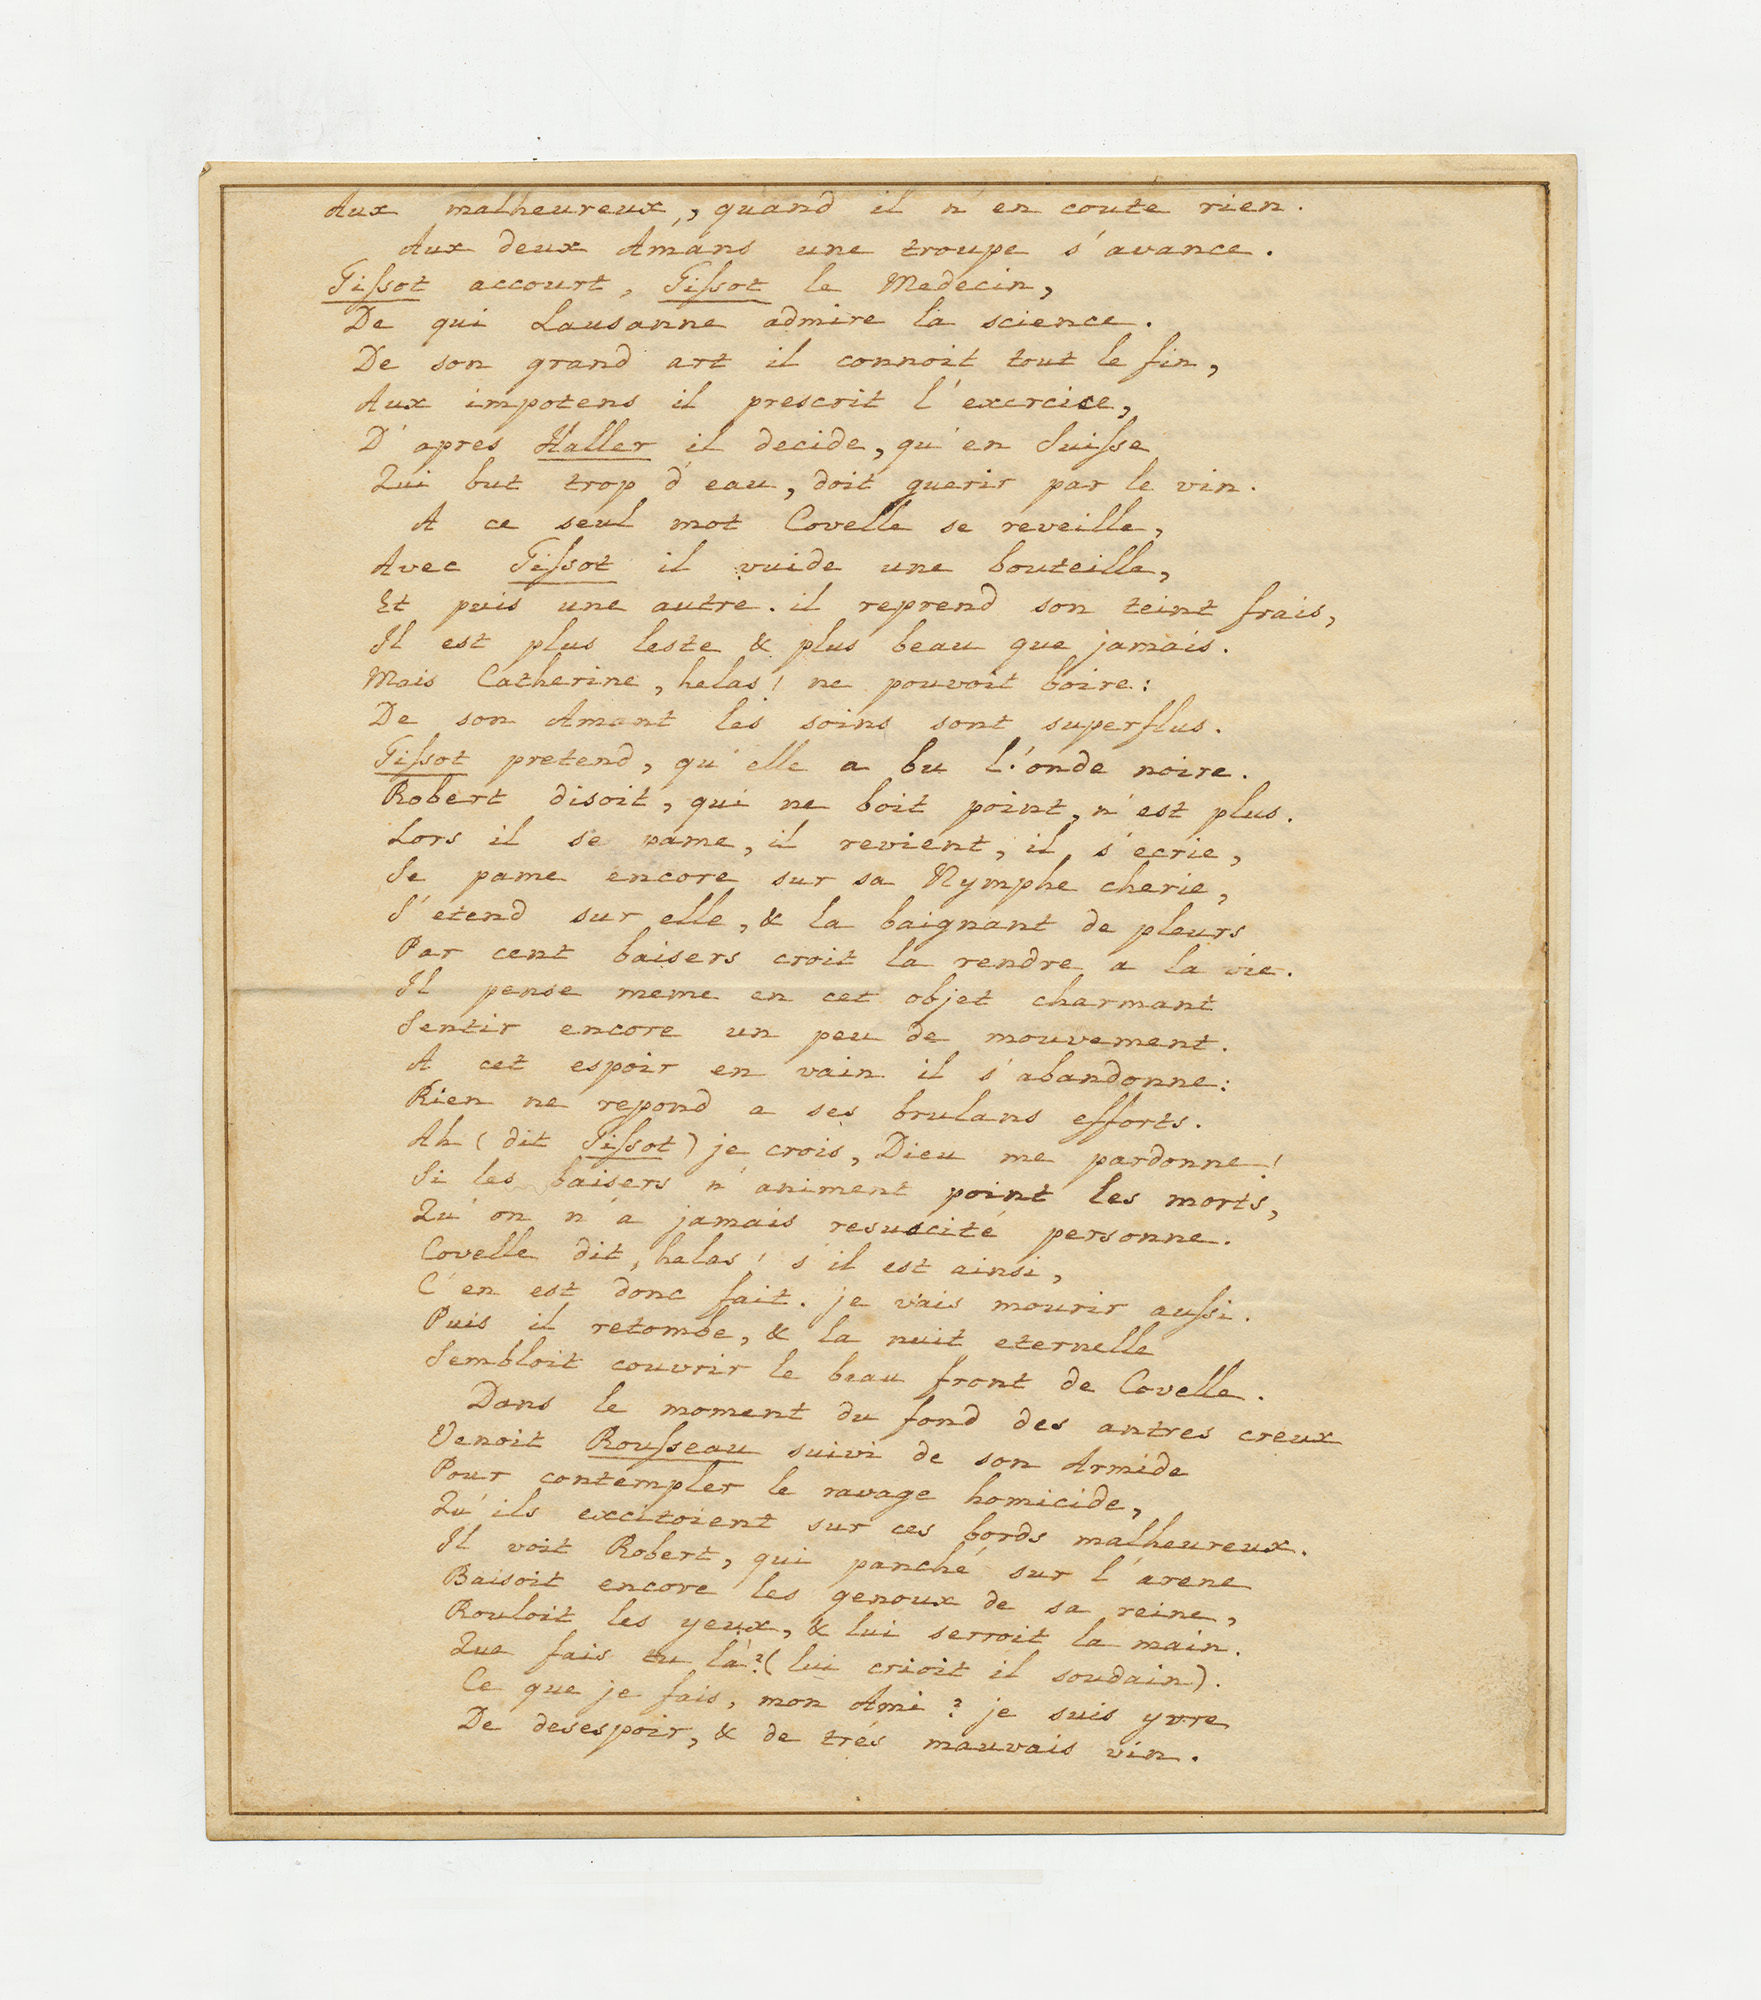 Aux malheureux, quand il n'en coute rien.
Aux deux Amans une troupe s'avance.
Tissot accourt, Tissot le Medecin,
De qui Lausanne admire la science.
De son grand art il connoit tout le fin,
Aux impotens il prescrit l'exercice,
D'apres Haller il decide, qu'en Suisse
Qui but trop d'eau, doit guerir par le vin.
A ce seul mot Covelle se reveille,
Avec Tissot il vuide une bouteille,
Et puis une autre. il reprend son teint frais,
Il est plus leste & plus beau que jamais.
Mais Catherine, helas! ne pouvoit boire:
De son Amant les soins sont superflus.
Tissot pretend, qu'elle a bu l'onde noire.
Robert disoit, qui ne boit point, n'est plus.
Lors il se pame, il revient, il s'ecrie,
Se pame encore sur sa Nymphe cherie,
S'etend sur elle, & la baignant de pleurs
Par cent baisers croit la rendre a la vie.
Il pense meme en cet objet charmant
Sentir encore un peu de mouvement.
A cet espoir en vain il s'abandonne:
Rien ne repond a ses brulans efforts.
Ah (dit Tissot) je crois, Dieu me pardonne!
Si les baisers n'animent point les morts,
Qu'on n'a jamais resuscité personne.
Covelle dit, helas! s'il est ainsi,
C'en est donc fait. je vais mourir aussi.
Puis il retombe, & la nuit eternelle
Sembloit couvrir le beau front de Covelle.
Dans le moment du fond des antres creux
Venoit Rousseau suivi de son Armide
Pour contempler le ravage homicide,
Qu'ils excitoient sur ces bords malheureux.
Il voit Robert, qui panché sur l'arene
Baisoit encore les genoux de sa reine,
Rouloit les yeux, & lui serroit la main.
Que fais tu là? (lui crioit il soudain).
Ce que je fais, mon Ami? je suis yvre
De desespoir, & de trés mauvais vin.